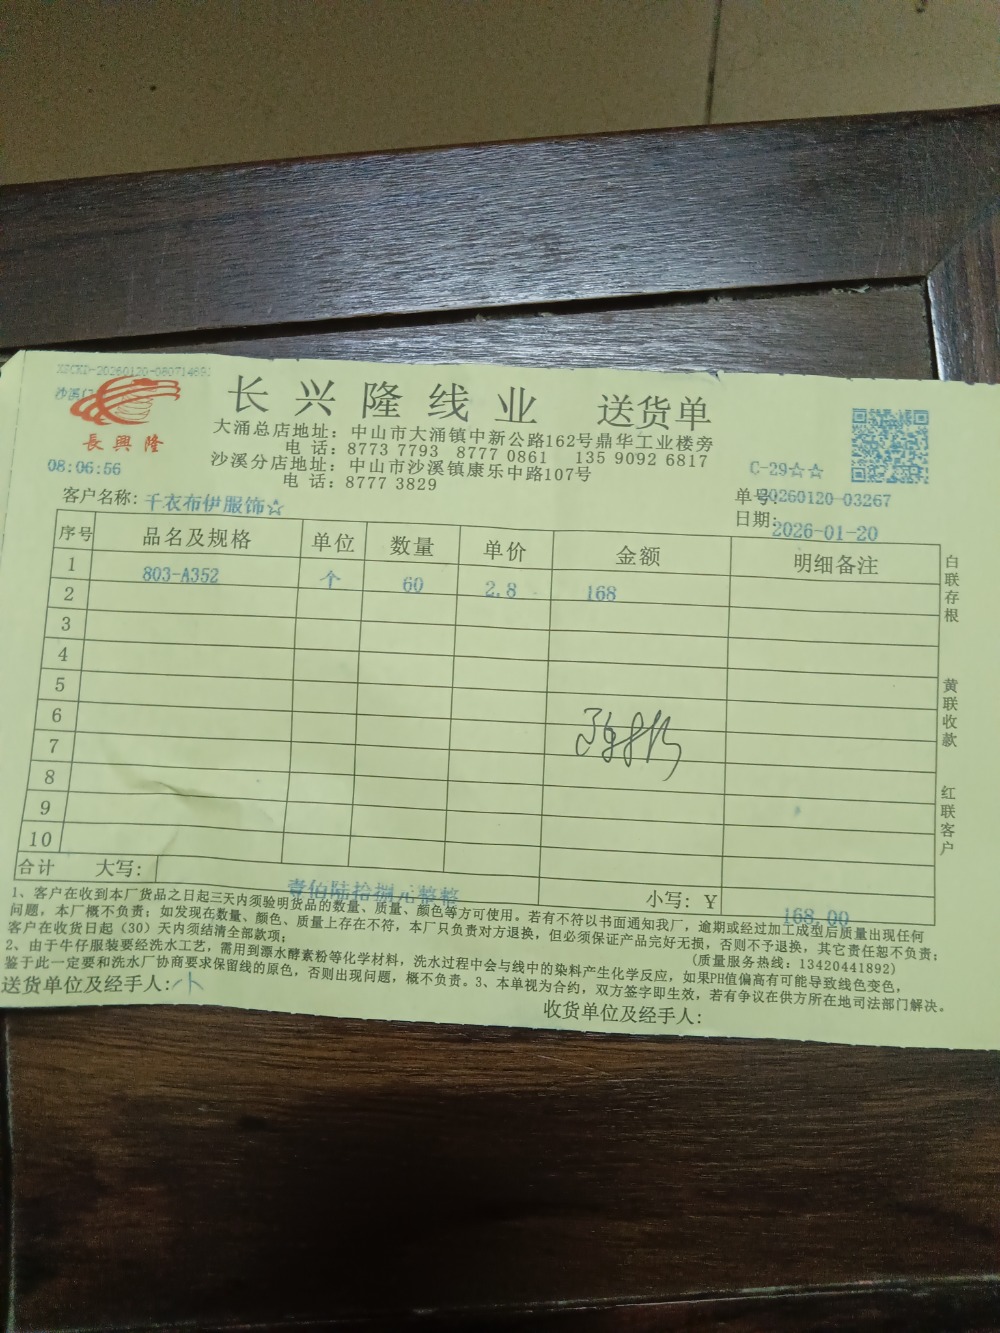 XSCKD-20260120-080714691
沙溪
長興隆
长兴隆线业 送货单
大涌总店地址：中山市大涌镇中新公路162号鼎华工业楼旁
电 话：8773 7793 8777 0861 135 9092 6817
沙溪分店地址：中山市沙溪镇康乐中路107号
电 话：8777 3829
08:06:56
C-29☆☆
单号:20260120-03267
客户名称:千衣布伊服饰☆
日期:2026-01-20
序号 品名及规格 单位 数量 单价 金额 明细备注
1 803-A352 个 60 2.8 168
2
3
4
5
6
7
8
9
10
合计 大写: 壹佰陆拾捌元整整 小写: Y 168.00
白联存根
黄联收款
红联客户
1、客户在收到本厂货品之日起三天内须验明货品的数量、质量、颜色等方可使用。若有不符以书面通知我厂，逾期或经过加工成型后质量出现任何
问题，本厂概不负责；如发现在数量、颜色、质量上存在不符，本厂只负责对方退换，但必须保证产品完好无损，否则不予退换，其它责任恕不负责；
客户在收货日起（30）天内须结清全部款项；
(质量服务热线: 13420441892)
2、由于牛仔服装要经洗水工艺，需用到漂水酵素粉等化学材料，洗水过程中会与线中的染料产生化学反应，如果PH值偏高有可能导致线色变色，
鉴于此一定要和洗水厂协商要求保留线的原色，否则出现问题，概不负责。3、本单视为合约，双方签字即生效，若有争议在供方所在地司法部门解决。
送货单位及经手人:
收货单位及经手人: